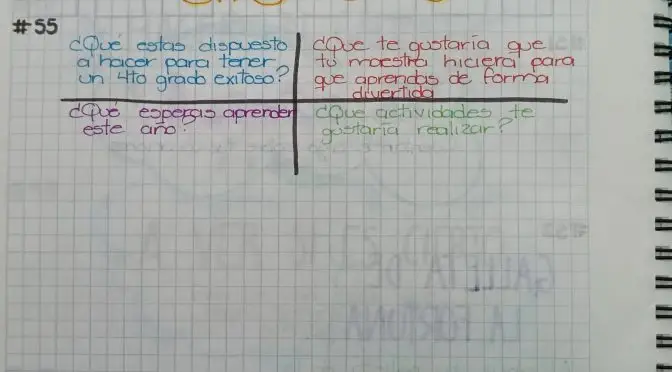 #55
¿Qué estas dispuesto
a hacer para tener
un 4to grado exitoso?
¿Que te gustaria que
tu maestra hiciera para
que aprendas de forma
divertida
¿Qué esperas aprender
este año?
¿Que actividades te
gustaria realizar?
GALLETA DE
LA FORTUNA